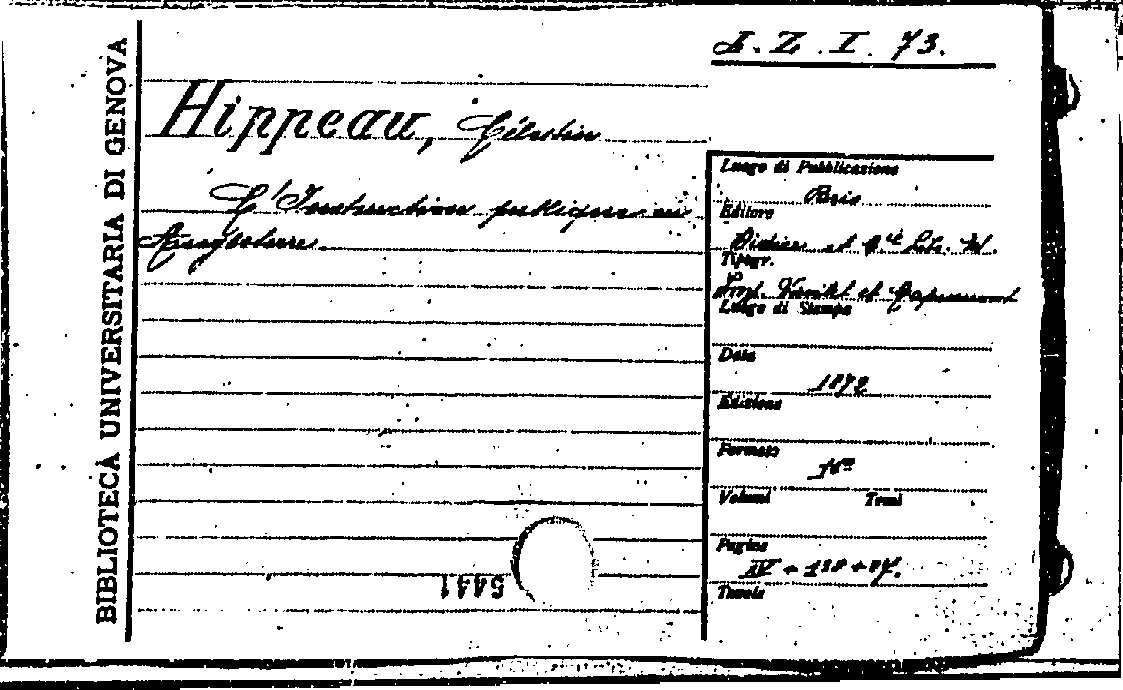 BIBLIOTECA UNIVERSITARIA DI GENOVA
Z. I. 73.
Hippeau, Célestin
L'Instruction publique en
Angleterre.
Luogo di Pubblicazione
Paris
Editore
Didier et C.ie Lib. Ed.
Tipogr.
Imp. et
Luogo di Stampa
Data
1872
Edizione
Formato
16º
Volumi Tomi
Pagine
IV +
Tavole
5441